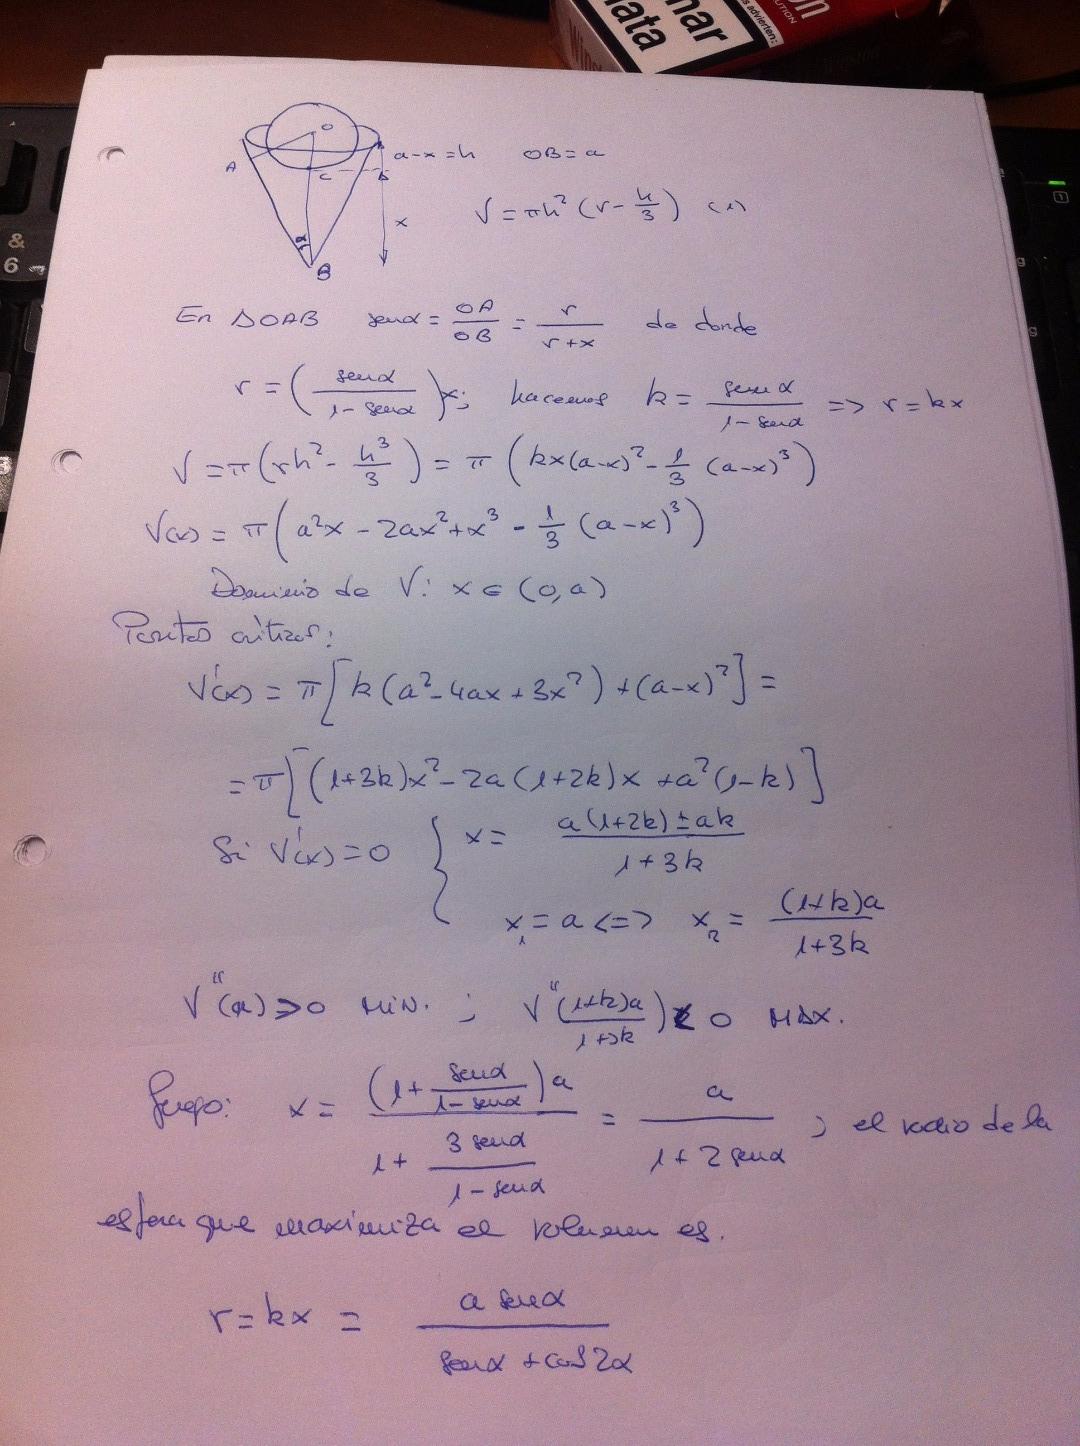 nar
nata
Winst
s advierten:
UTION
&
6
O
A
C
B
α
x
a-x=h OB=a
V=πh²(r-h/3) (1)
En ΔOAB senα = OA/OB = r/(r+x) de donde
r = (senα/(1-senα))x; hacemos k = senα/(1-senα) => r=kx
V=π(rh²-h³/3) = π(kx(a-x)²-1/3(a-x)³)
V(x) = π(a²x-2ax²+x³-1/3(a-x)³)
Dominio de V: x∈(0,a)
Puntos críticos:
V'(x) = π[k(a²-4ax+3x²)+(a-x)²] =
=π[(1+3k)x²-2a(1+2k)x+a²(1-k)]
Si V'(x)=0 { x= (a(1+2k)±ak)/(1+3k)
x₁=a <=> x₂= (1+k)a/(1+3k)
V"(a)>0 MIN. ; V"((1+k)a/(1+3k))<0 MAX.
luego: x= ((1+senα/(1-senα))a)/(1+3senα/(1-senα)) = a/(1+2senα) ; el radio de la
esfera que maximiza el volumen es.
r=kx = a senα/(senα+cos2α)